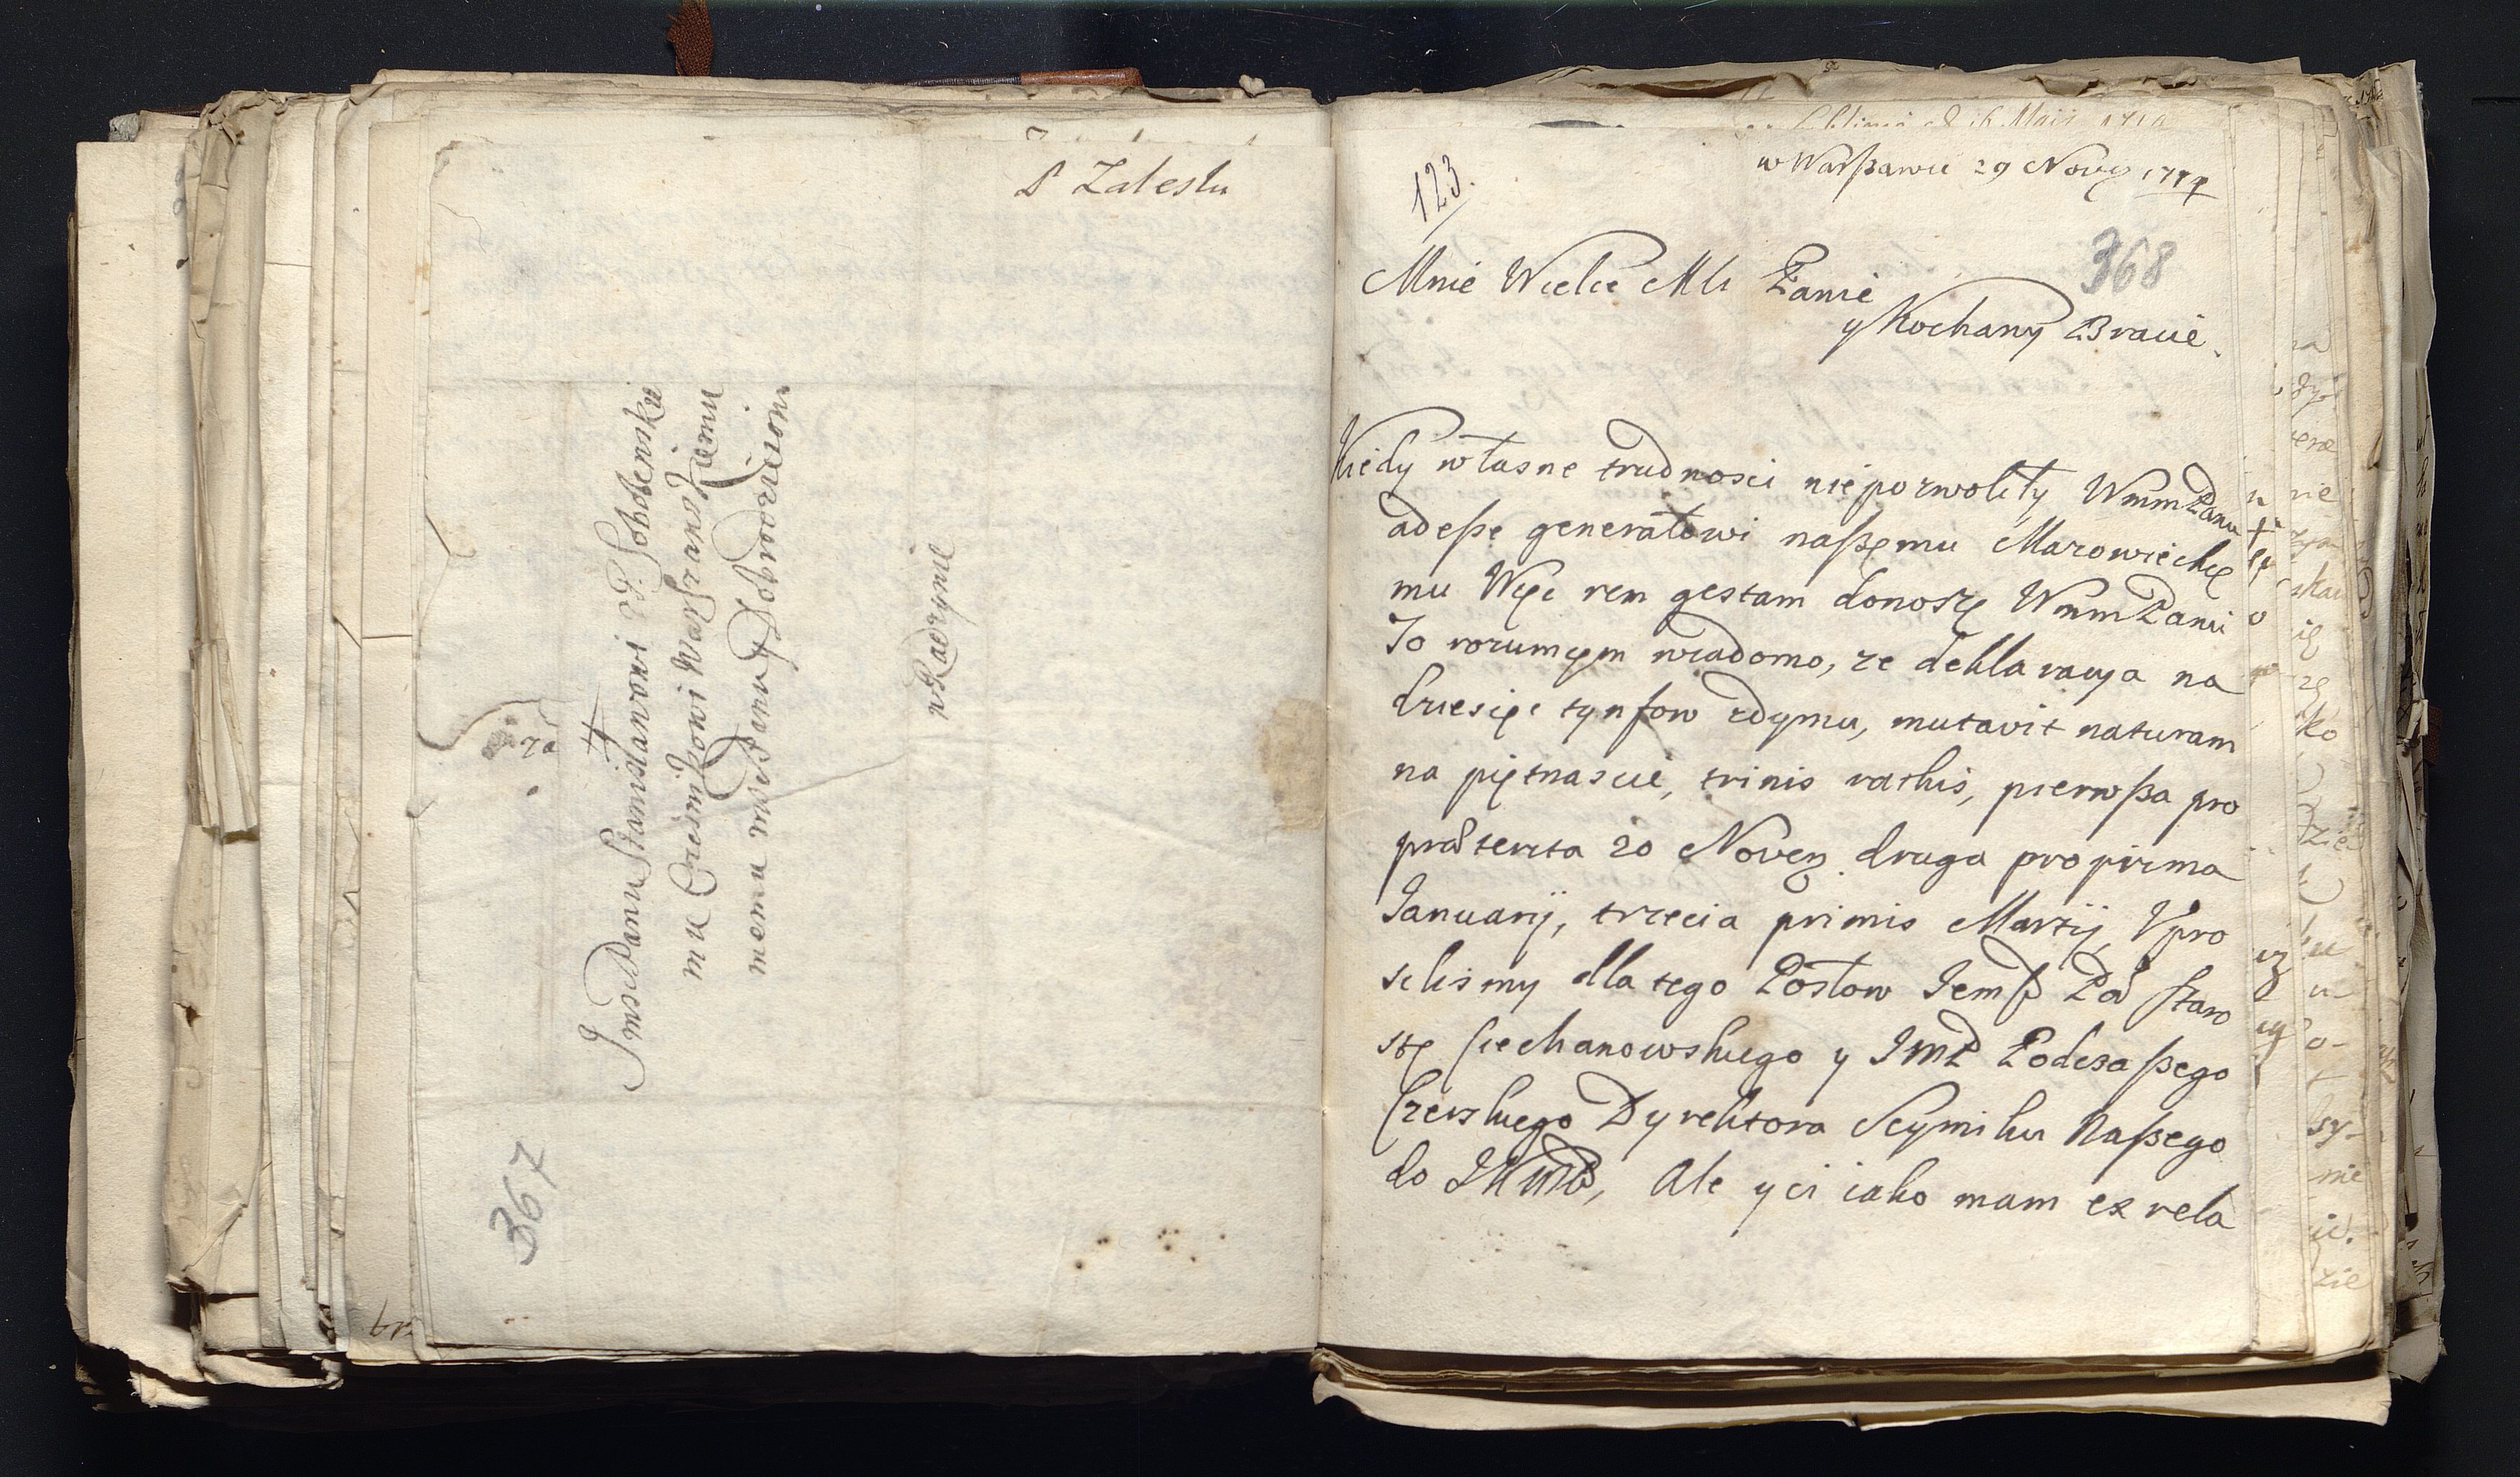 P Zaleski
Jmci Panu Stanislawowi
mu Czesnikowi Warszawskiemu
memu mści Panu y Dobrodzieiowi
w Radzyminie
367
123.
w Warßawie 29 Novę
368
Mnie Wielce Mści Panie
y Kochany Bracie.
Kiedy własne trudnosci nie pozwoliły WmmPanu
adeße generałowi naßemu Mazowiecke
mu Więc rem gestam donoszę WmmPanu
To rozumięm wiadomo, ze deklaracya na
dziesięc tynfow z dymu, mutavit naturam
na piętnascie, trinis rathis, pierwßa pro
præterita 20 Noveb. druga pro prima
Januarij, trzecia primis Martij, Vpro
silismy dla tego Posłow Jemsc Pa Staro
stę Ciechanowskiego y JmP Podczaßego
Czerskiego Dyrektora Seymiku Naßego
do JKMci, Ale y ci iako mam ex rela